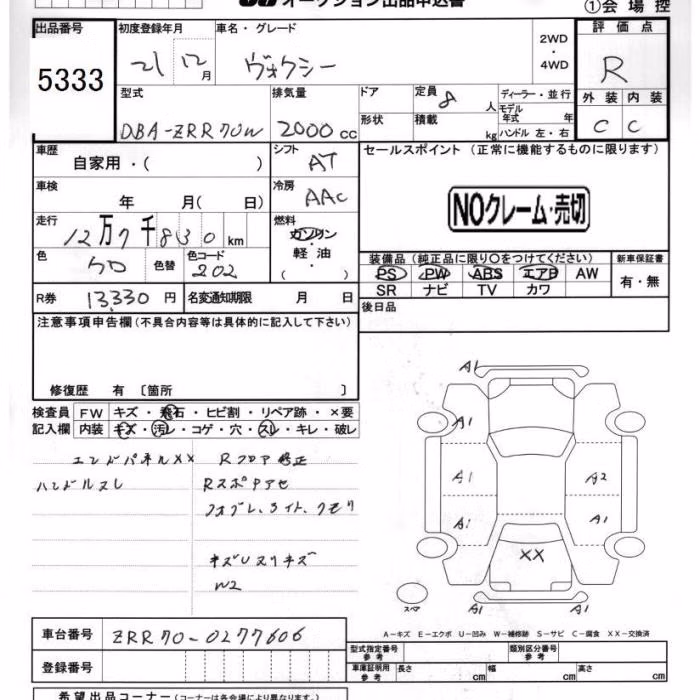 オークション出品申込書
①会場控
出品番号
5333
初度登録年月
21 12月
車名・グレード
ヴォクシー
2WD
・
4WD
評価点
R
外装 内装
C C
型式
DBA-ZRR70W
排気量
2000cc
ドア
形状
定員 8人
積載 kg
ディーラー・並行
モデル
年式 年
ハンドル 左・右
車歴
自家用・( )
シフト
AT
車検
年 月( 日)
冷房
AAC
走行
12万7千830km
燃料
ガソリン
軽油
( )
色
クロ
色替
色コード
202
R券 13,330円
名変通知期限 月 日
セールスポイント (正常に機能するものに限ります)
NOクレーム・売切
装備品 (純正品に限り○をつけてください)
PS PW ABS エアB AW
SR ナビ TV カワ
新車保証書
有・無
後日品
注意事項申告欄(不具合内容等は具体的に記入して下さい)
修復歴 有 〔箇所 〕
検査員
記入欄
FW キズ・飛石・ヒビ割・リペア跡・×要
内装 キズ・汚レ・コゲ・穴・スレ・キレ・破レ
エンドパネルXX Rフロア修正
ハンドルスレ
A1
A1
A1
A2
A1
A1
XX
スペア
A1
A1
W2
A-キズ E-エクボ U-凹み W-補修跡 S-サビ C-腐食 XX-交換済
車台番号
ZRR70-0277606
登録番号
型式指定番号
参考
類別区分番号
参考
車庫証明用
参考
長さ cm
幅 cm
高さ cm
希望出品コーナー(コーナーは各会場により異なります)